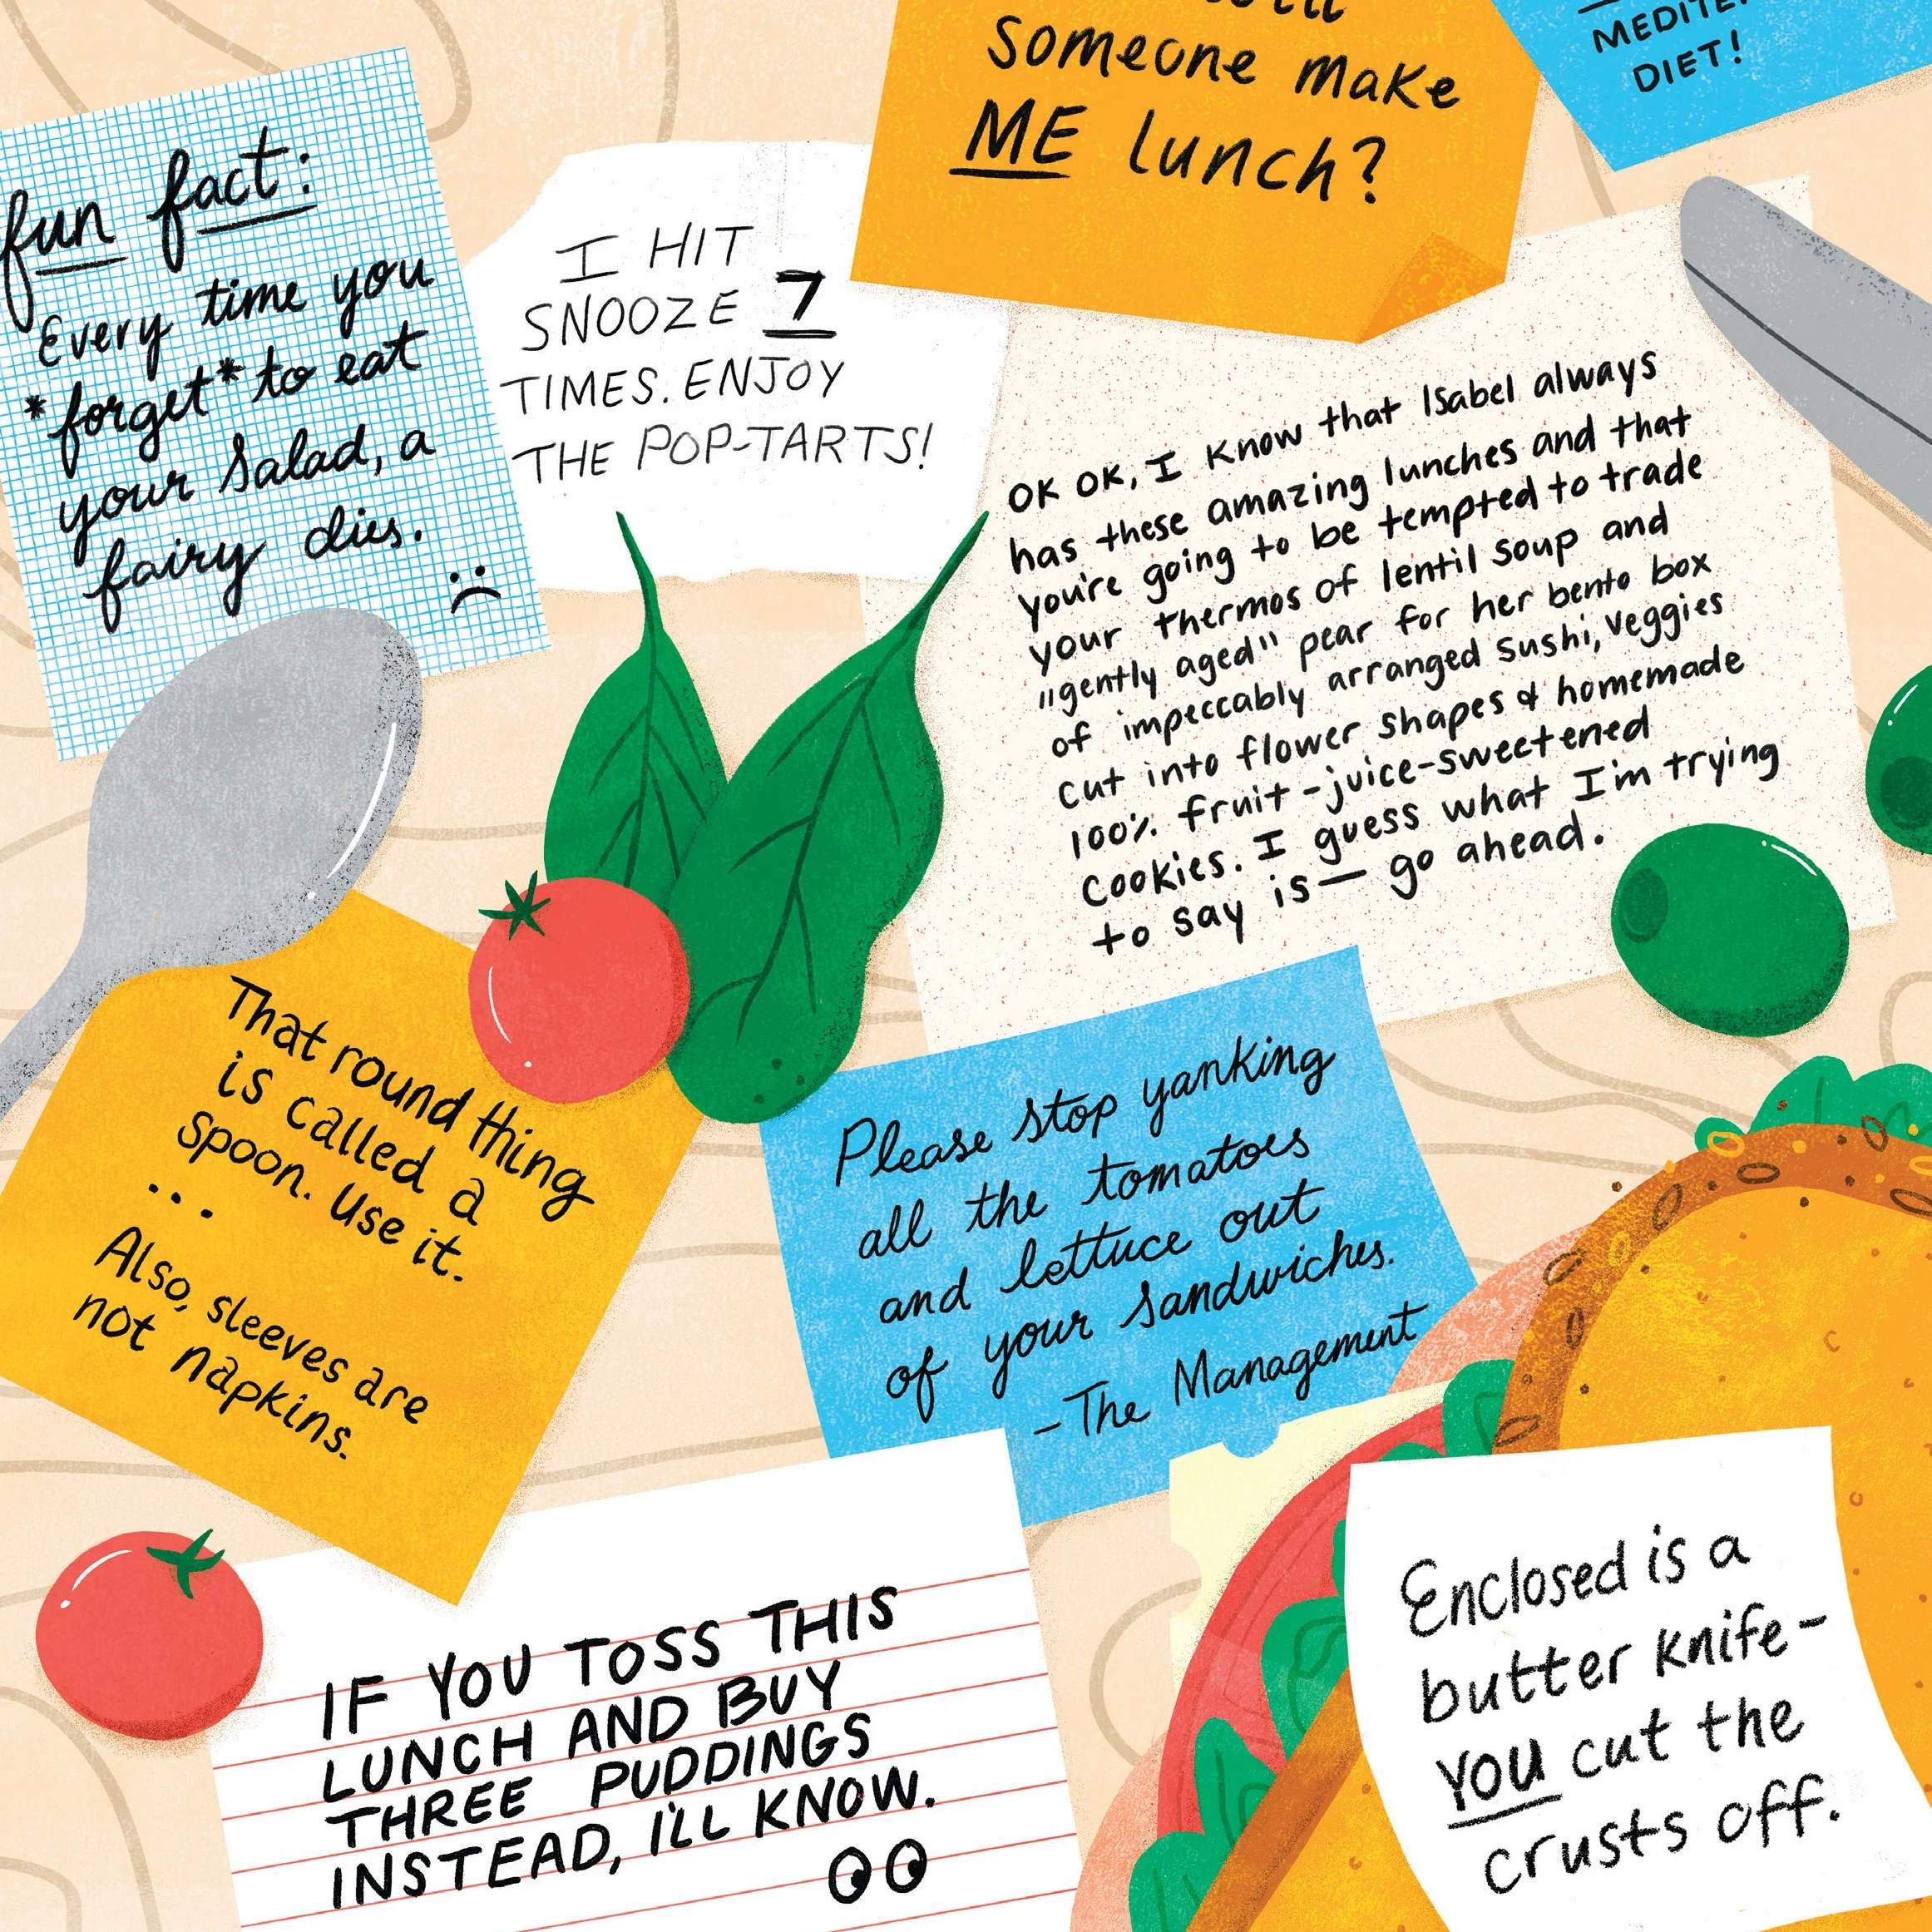 someone make
ME lunch?
DIET!
fun fact:
Every time you
*forget* to eat
your salad, a
fairy dies.
I HIT
SNOOZE 7
TIMES. ENJOY
THE POP-TARTS!
OK OK, I know that Isabel always
has these amazing lunches and that
you're going to be tempted to trade
your thermos of lentil soup and
"gently aged" pear for her bento box
of impeccably arranged sushi, veggies
cut into flower shapes & homemade
100% fruit-juice-sweetened
cookies. I guess what I'm trying
to say is— go ahead.
That round thing
is called a
spoon. Use it.
...
Also, sleeves are
not napkins.
Please stop yanking
all the tomatoes
and lettuce out
of your sandwiches.
-The Management
IF YOU TOSS THIS
LUNCH AND BUY
THREE PUDDINGS
INSTEAD, I'LL KNOW.
Enclosed is a
butter knife-
YOU cut the
crusts off.